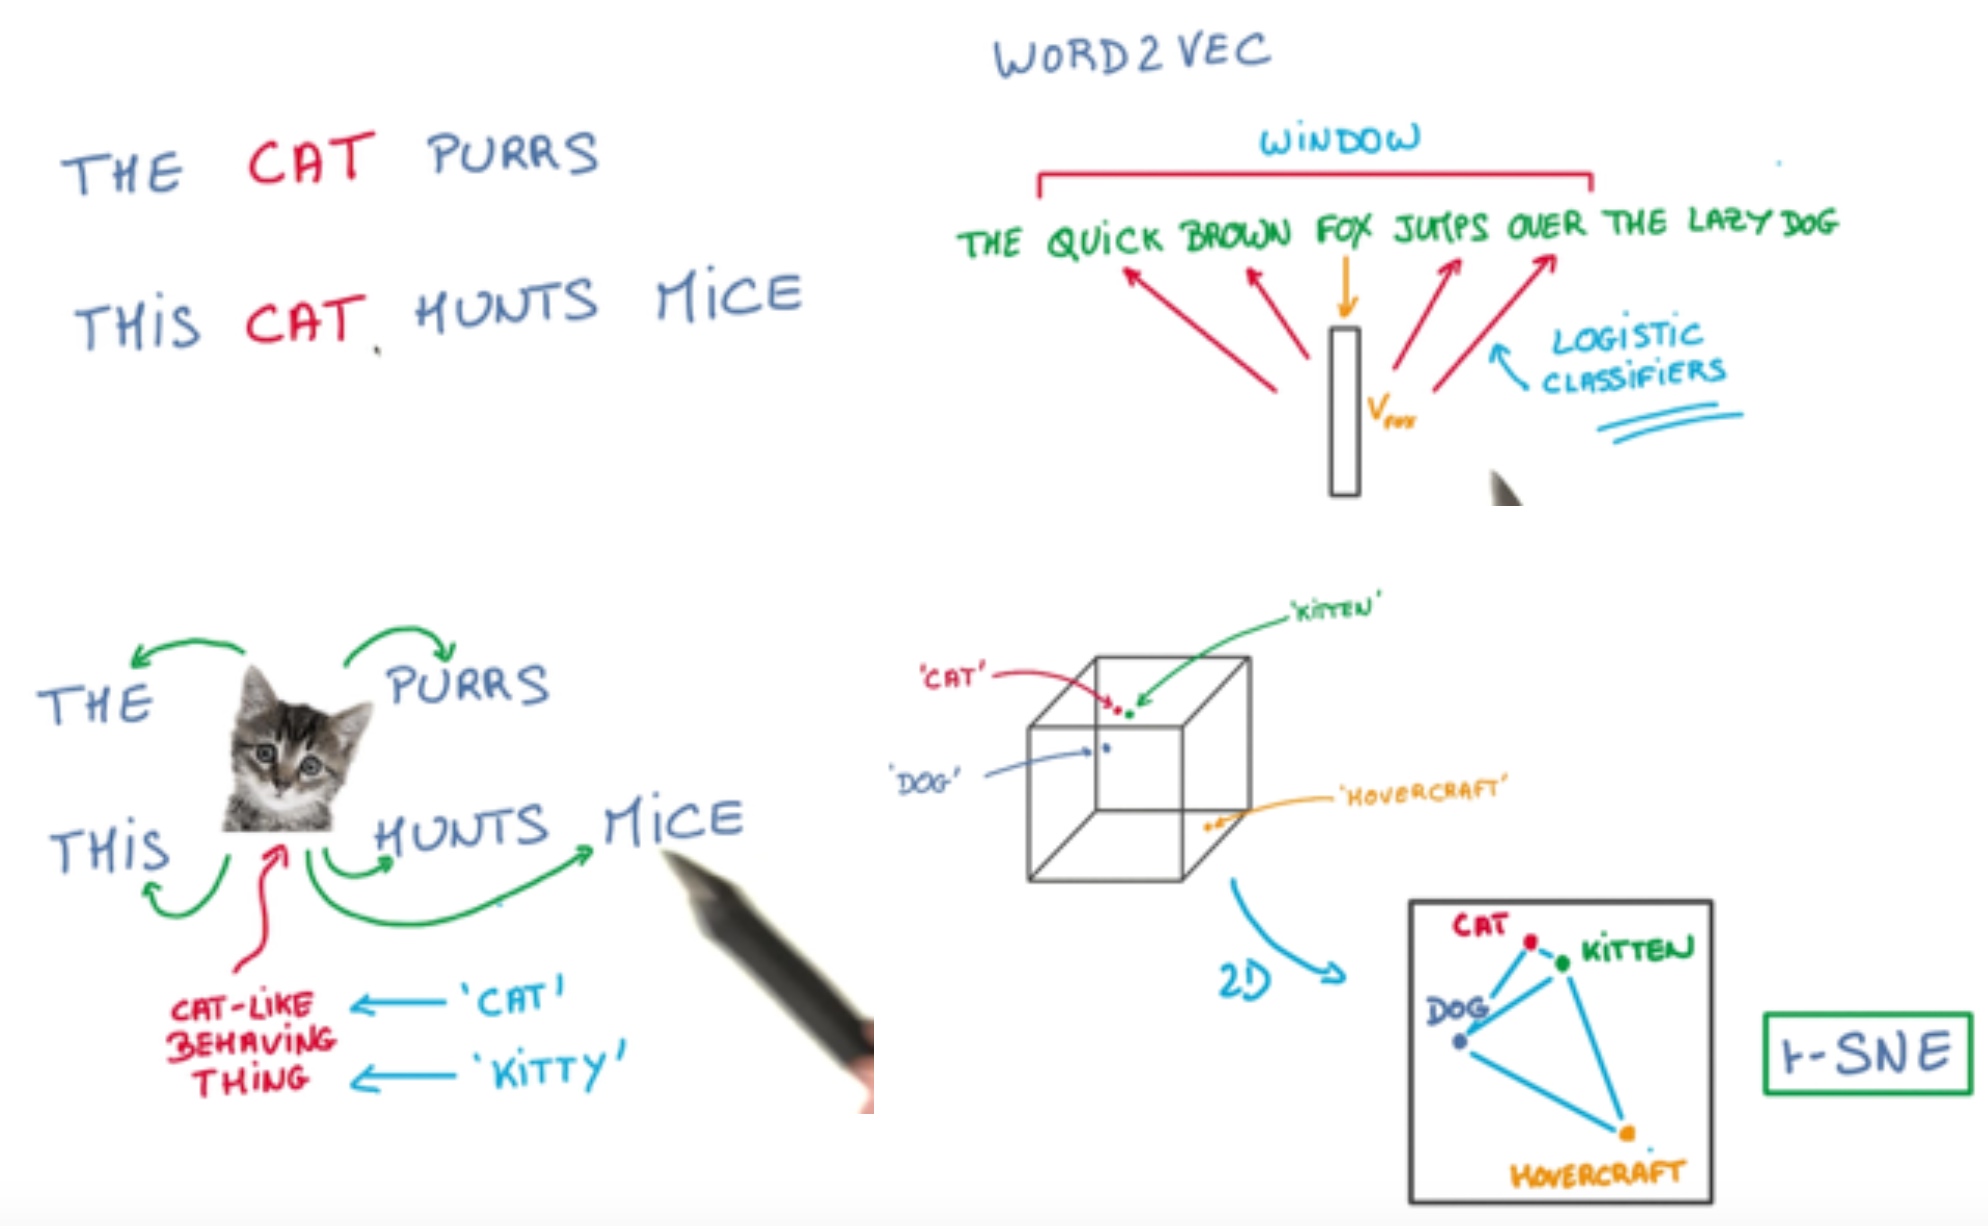 THE CAT PURRS
THIS CAT HUNTS MICE
WORD2VEC
WINDOW
THE QUICK BROWN FOX JUMPS OVER THE LAZY DOG
LOGISTIC
CLASSIFIERS
Vfox
THE PURRS
THIS HUNTS MICE
CAT-LIKE
BEHAVING
THING
'CAT'
'KITTY'
'KITTEN'
'CAT'
'DOG'
'HOVERCRAFT'
2D
CAT
KITTEN
DOG
HOVERCRAFT
t-SNE